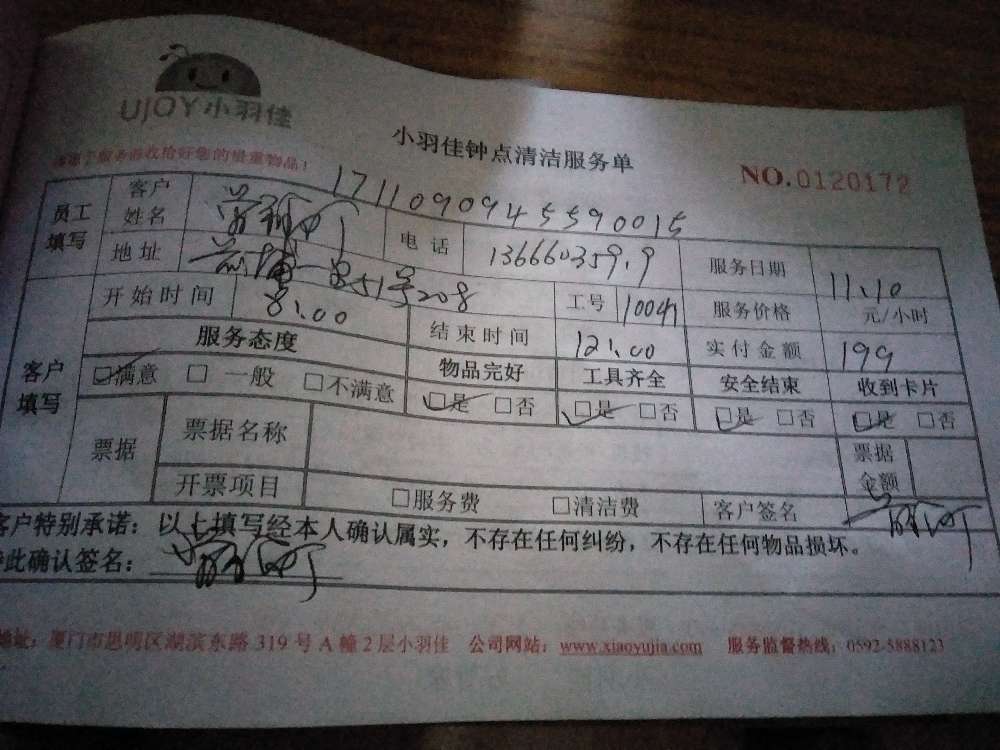 UJOY小羽佳
小羽佳钟点清洁服务单
NO.0120172
17110909455590015
员工填写 客户姓名 电话 服务日期 11.10
地址 51号208 工号 10041 服务价格 元/小时
开始时间 8:00 结束时间 12:00 实付金额 199
客户填写 服务态度 物品完好 工具齐全 安全结束 收到卡片
满意 一般 不满意 是 否 是 否 是 否 是 否
票据 票据名称 票据金额
开票项目 服务费 清洁费 客户签名
客户特别承诺：以上填写经本人确认属实，不存在任何纠纷，不存在任何物品损坏。
此确认签名：
地址：厦门市思明区湖滨东路319号A幢2层小羽佳 公司网站：www.xiaoyujia.com 服务监督热线：0592-5888123